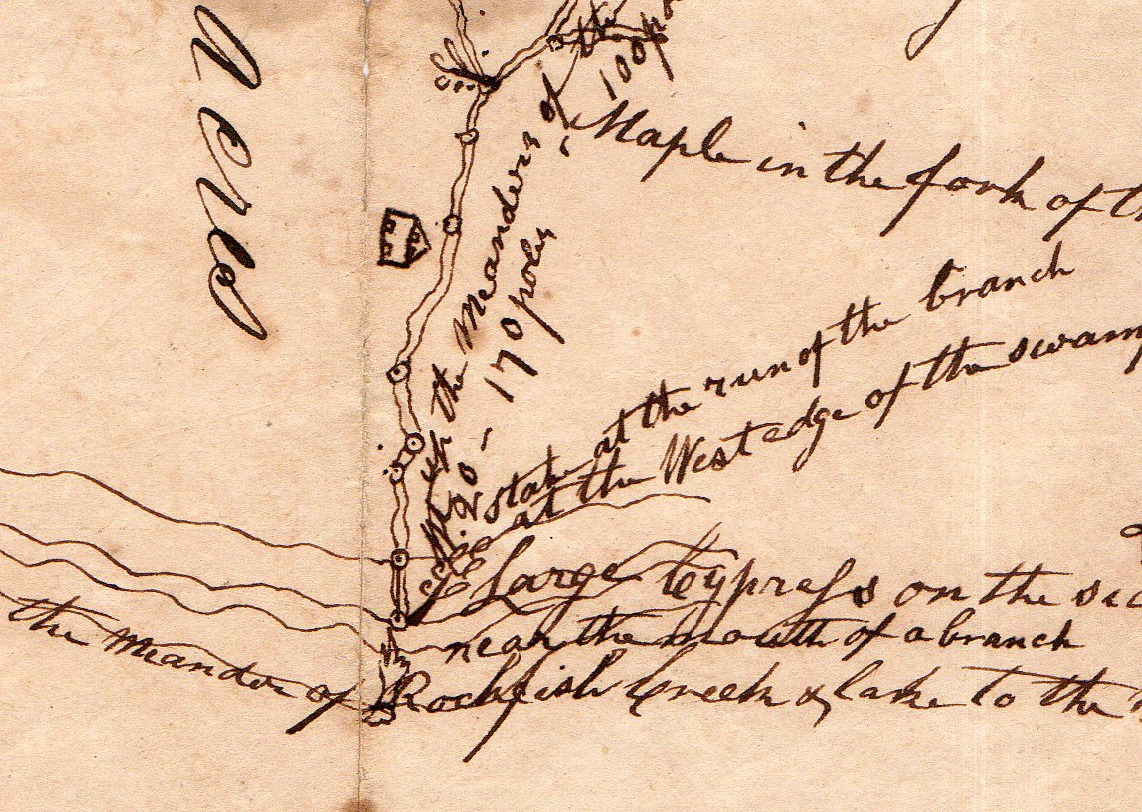 Acres
the
100 po
Maple in the fork of th
up the Meanders of
170 poles
stake at the run of the branch
at the West edge of the swamp
N 20
Large Cypress on the sid
near the mouth of a branch
the meander of Rockfish Creek & lake to the